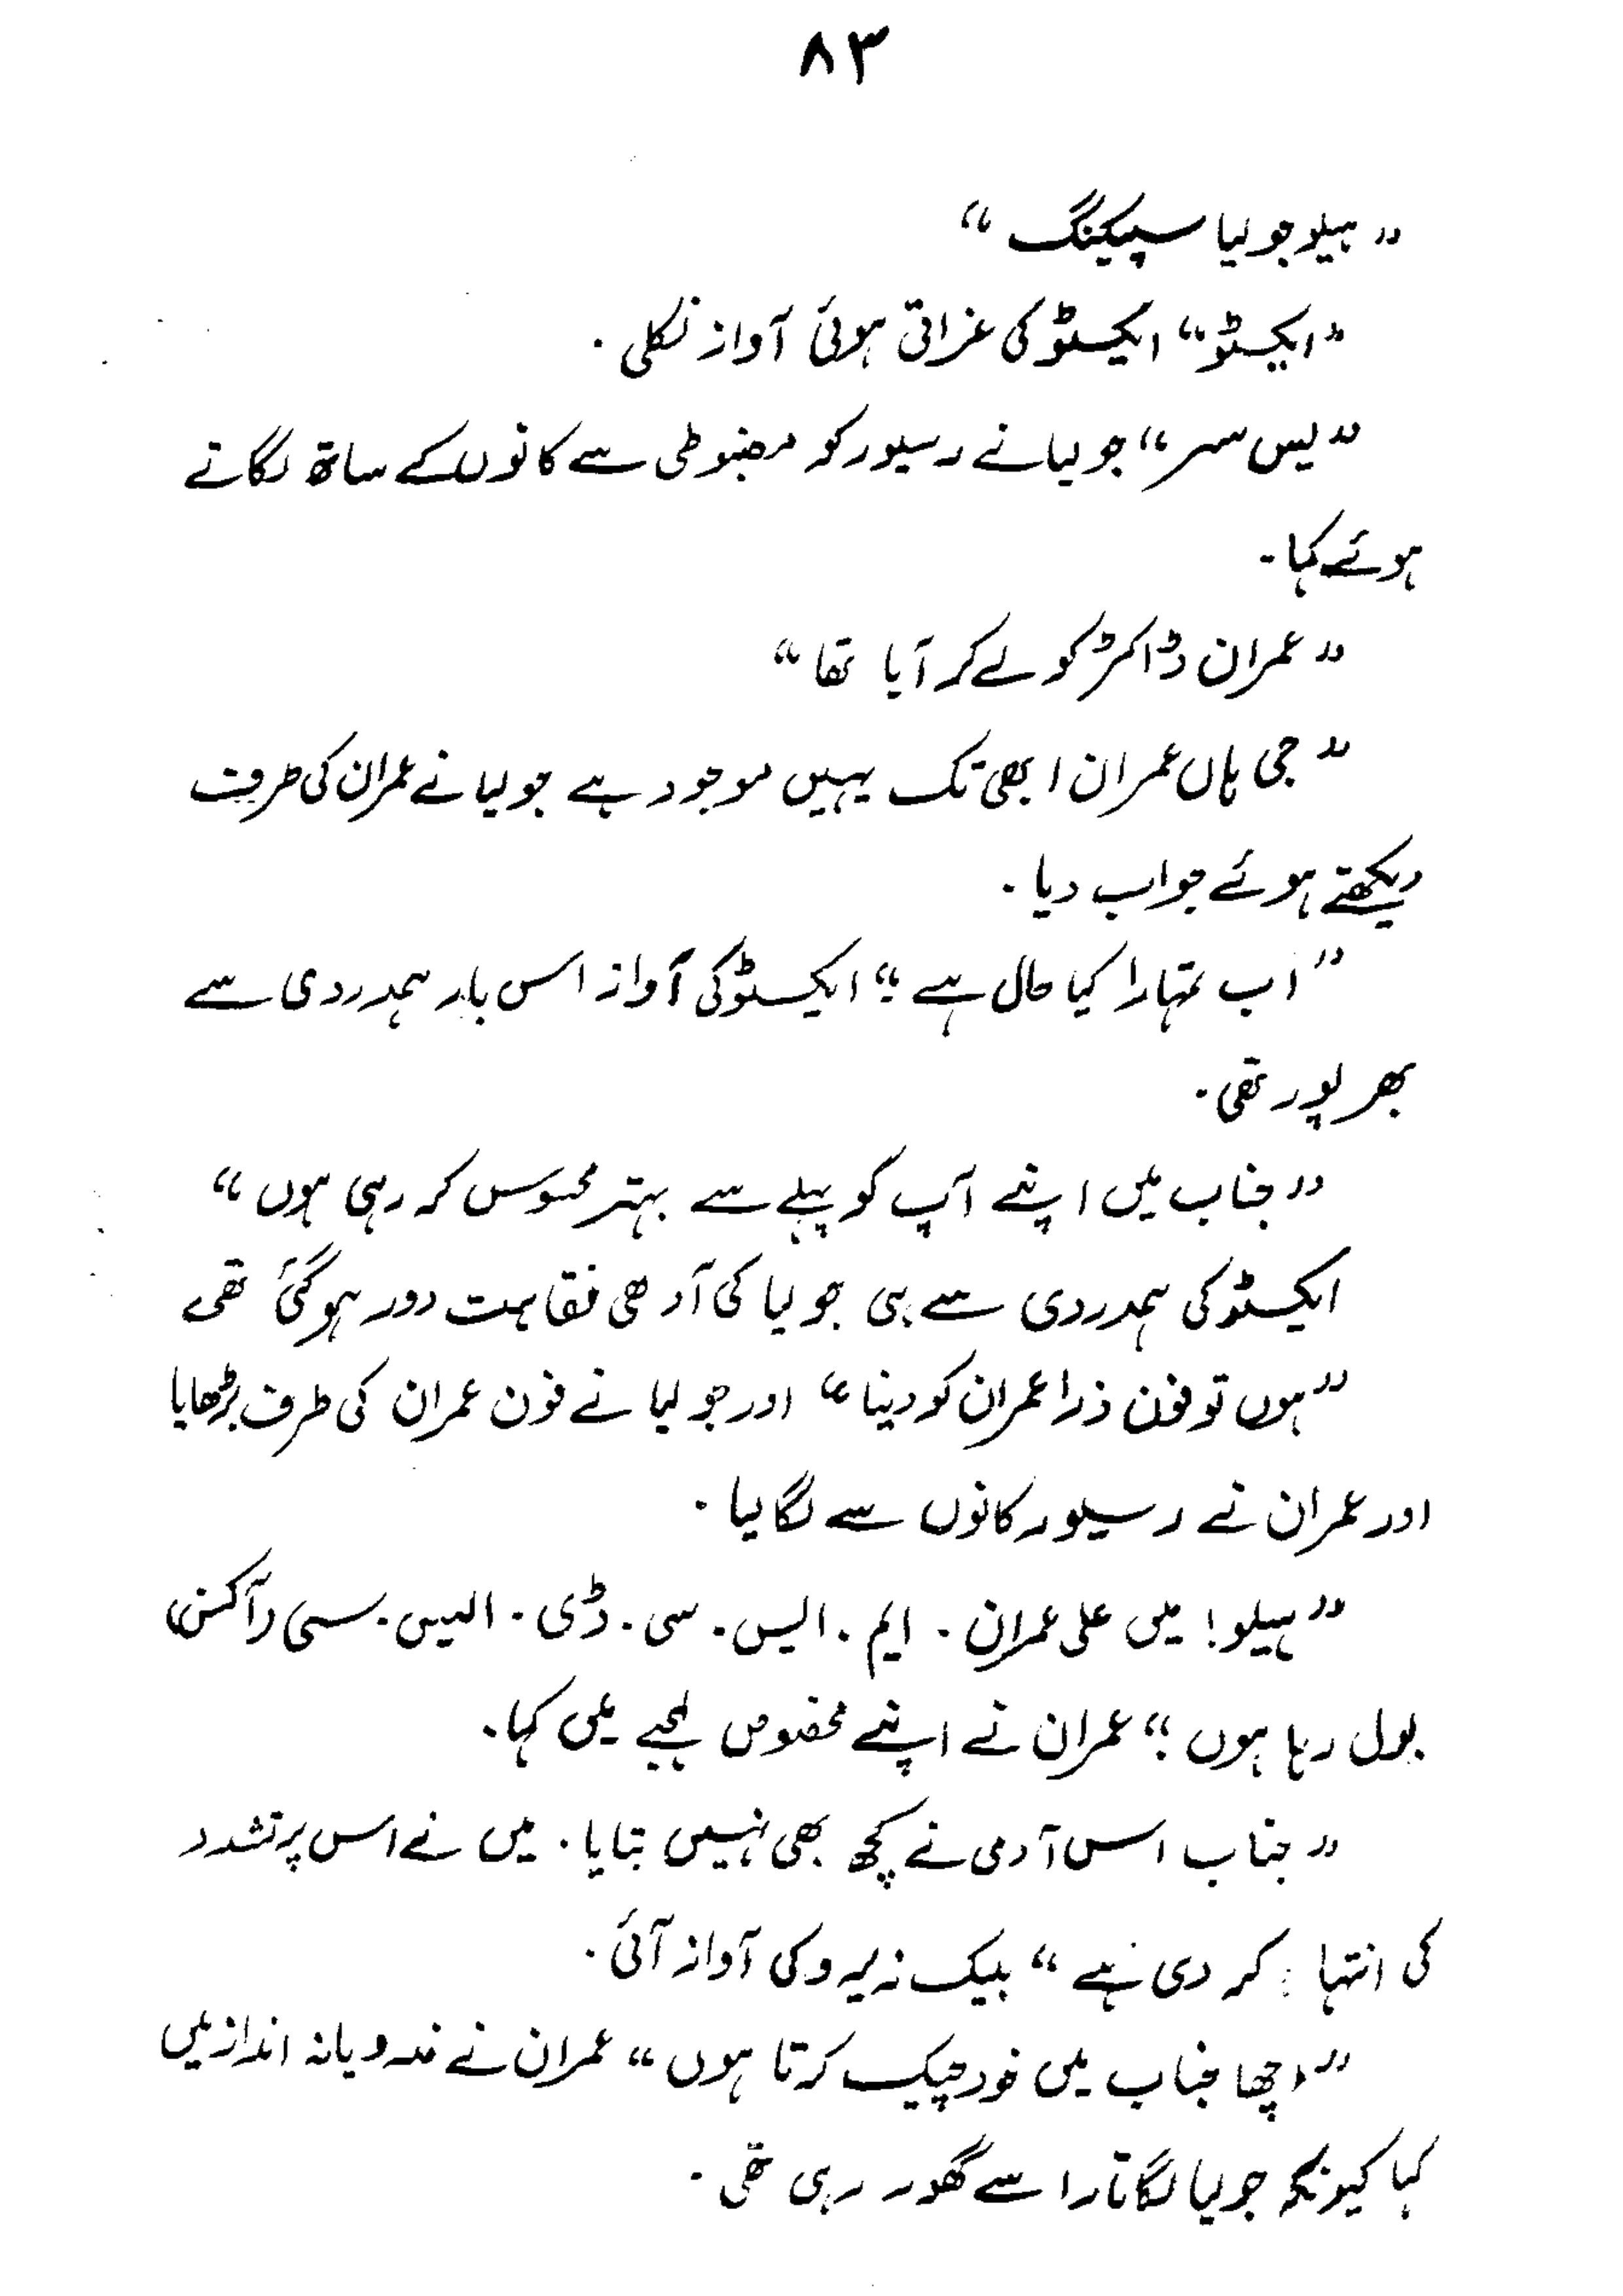 ۸۳
"ہیلو جولیا سپیکنگ"
"ایکسٹو" ایکسٹو کی غراتی ہوئی آواز نکلی۔
"یس سر" جولیا نے رسیور کو مضبوطی سے کانوں کے ساتھ لگاتے
ہوئے کہا۔
"عمران ڈاکٹر کو لے کر آیا تھا"
"جی ہاں عمران ابھی تک یہیں موجود ہے جولیا نے عمران کی طرف
دیکھتے ہوئے جواب دیا۔
"اب تمہارا کیا حال ہے؟" ایکسٹو کی آواز اس بار ہمدردی سے
بھر پور تھی۔
"جناب میں اپنے آپ کو پہلے سے بہتر محسوس کر رہی ہوں"
ایکسٹو کی ہمدردی سے ہی جولیا کی آدھی نقاہت دور ہو گئی تھی
"ہوں تو فون ذرا عمران کو دینا" اور جولیا نے فون عمران کی طرف بڑھایا
اور عمران نے رسیور کانوں سے لگا لیا۔
"ہیلو! میں علی عمران۔ ایم۔ ایس۔ سی۔ ڈی۔ ایس۔ سی (آکسن)
بول رہا ہوں؟" عمران نے اپنے مخصوص لہجے میں کہا۔
"جناب اس آدمی نے کچھ بھی نہیں بتایا۔ میں نے اس پر تشدد
کی انتہا کر دی ہے" بلیک زیرو کی آواز آئی۔
"اچھا جناب میں خود چیک کرتا ہوں" عمران نے فدویانہ انداز میں
کہا کیونکہ جولیا لگاتار اسے گھور رہی تھی۔